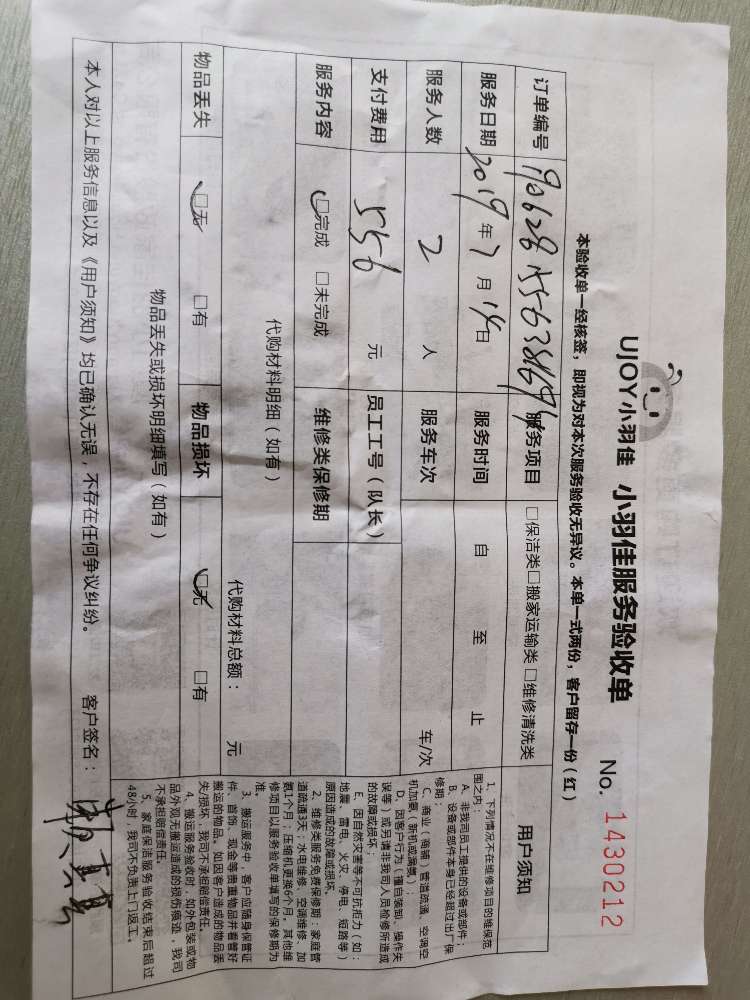 UJOY小羽佳 小羽佳服务验收单 No. 1430212
本验收单一经核签，即视为对本次服务验收无异议。本单一式两份，客户留存一份（红）
订单编号 服务项目 □保洁类□搬家运输类 □维修清洗类
服务日期 2019 年 7 月 14 日 服务时间 自 至 止
服务人数 2 人 服务车次 车/次
支付费用 556 元 员工工号（队长）
服务内容 □完成 □未完成 维修类保修期
代购材料明细（如有） 代购材料总额： 元
物品丢失 □无 □有 物品损坏 □无 □有
物品丢失或损坏明细填写（如有）
本人对以上服务信息以及《用户须知》均已确认无误，不存在任何争议纠纷。 客户签名：
用户须知
1、下列情况不在维修项目的维保范
围之内：
A、非我司员工提供的设备或部件；
B、设备或部件本身已经超过出厂保
修期；
C、商业（商铺）管道疏通、空调空
机加氨（新机或漏氨）；
D、因客户行为（擅自装制、操作失
误等）或另请非我司人员检修所造成
的故障或损坏；
E、因自然灾害等不可抗拒力（如：
地震、雷电、火灾、停电、短路等）
原因造成的故障或损坏。
2、维修类服务免费保修期：家庭管
道疏通3天；水电维修、空调维修、加
氨1个月；压缩机更换6个月。其他维
修项目以服务验收单填写的保修期为
准。
3、搬运服务中，客户应随身保管证
件、首饰、现金等贵重物品并看管好
搬运的物品。如因客户造成的物品丢
失/损坏，我司不承担赔偿责任。
4、搬运服务验收时，如外包装或物
品外观无搬运造成的损伤痕迹，我司
不承担赔偿责任。
5、家庭保洁服务验收结束后超过
48小时，我司不负责上门返工。